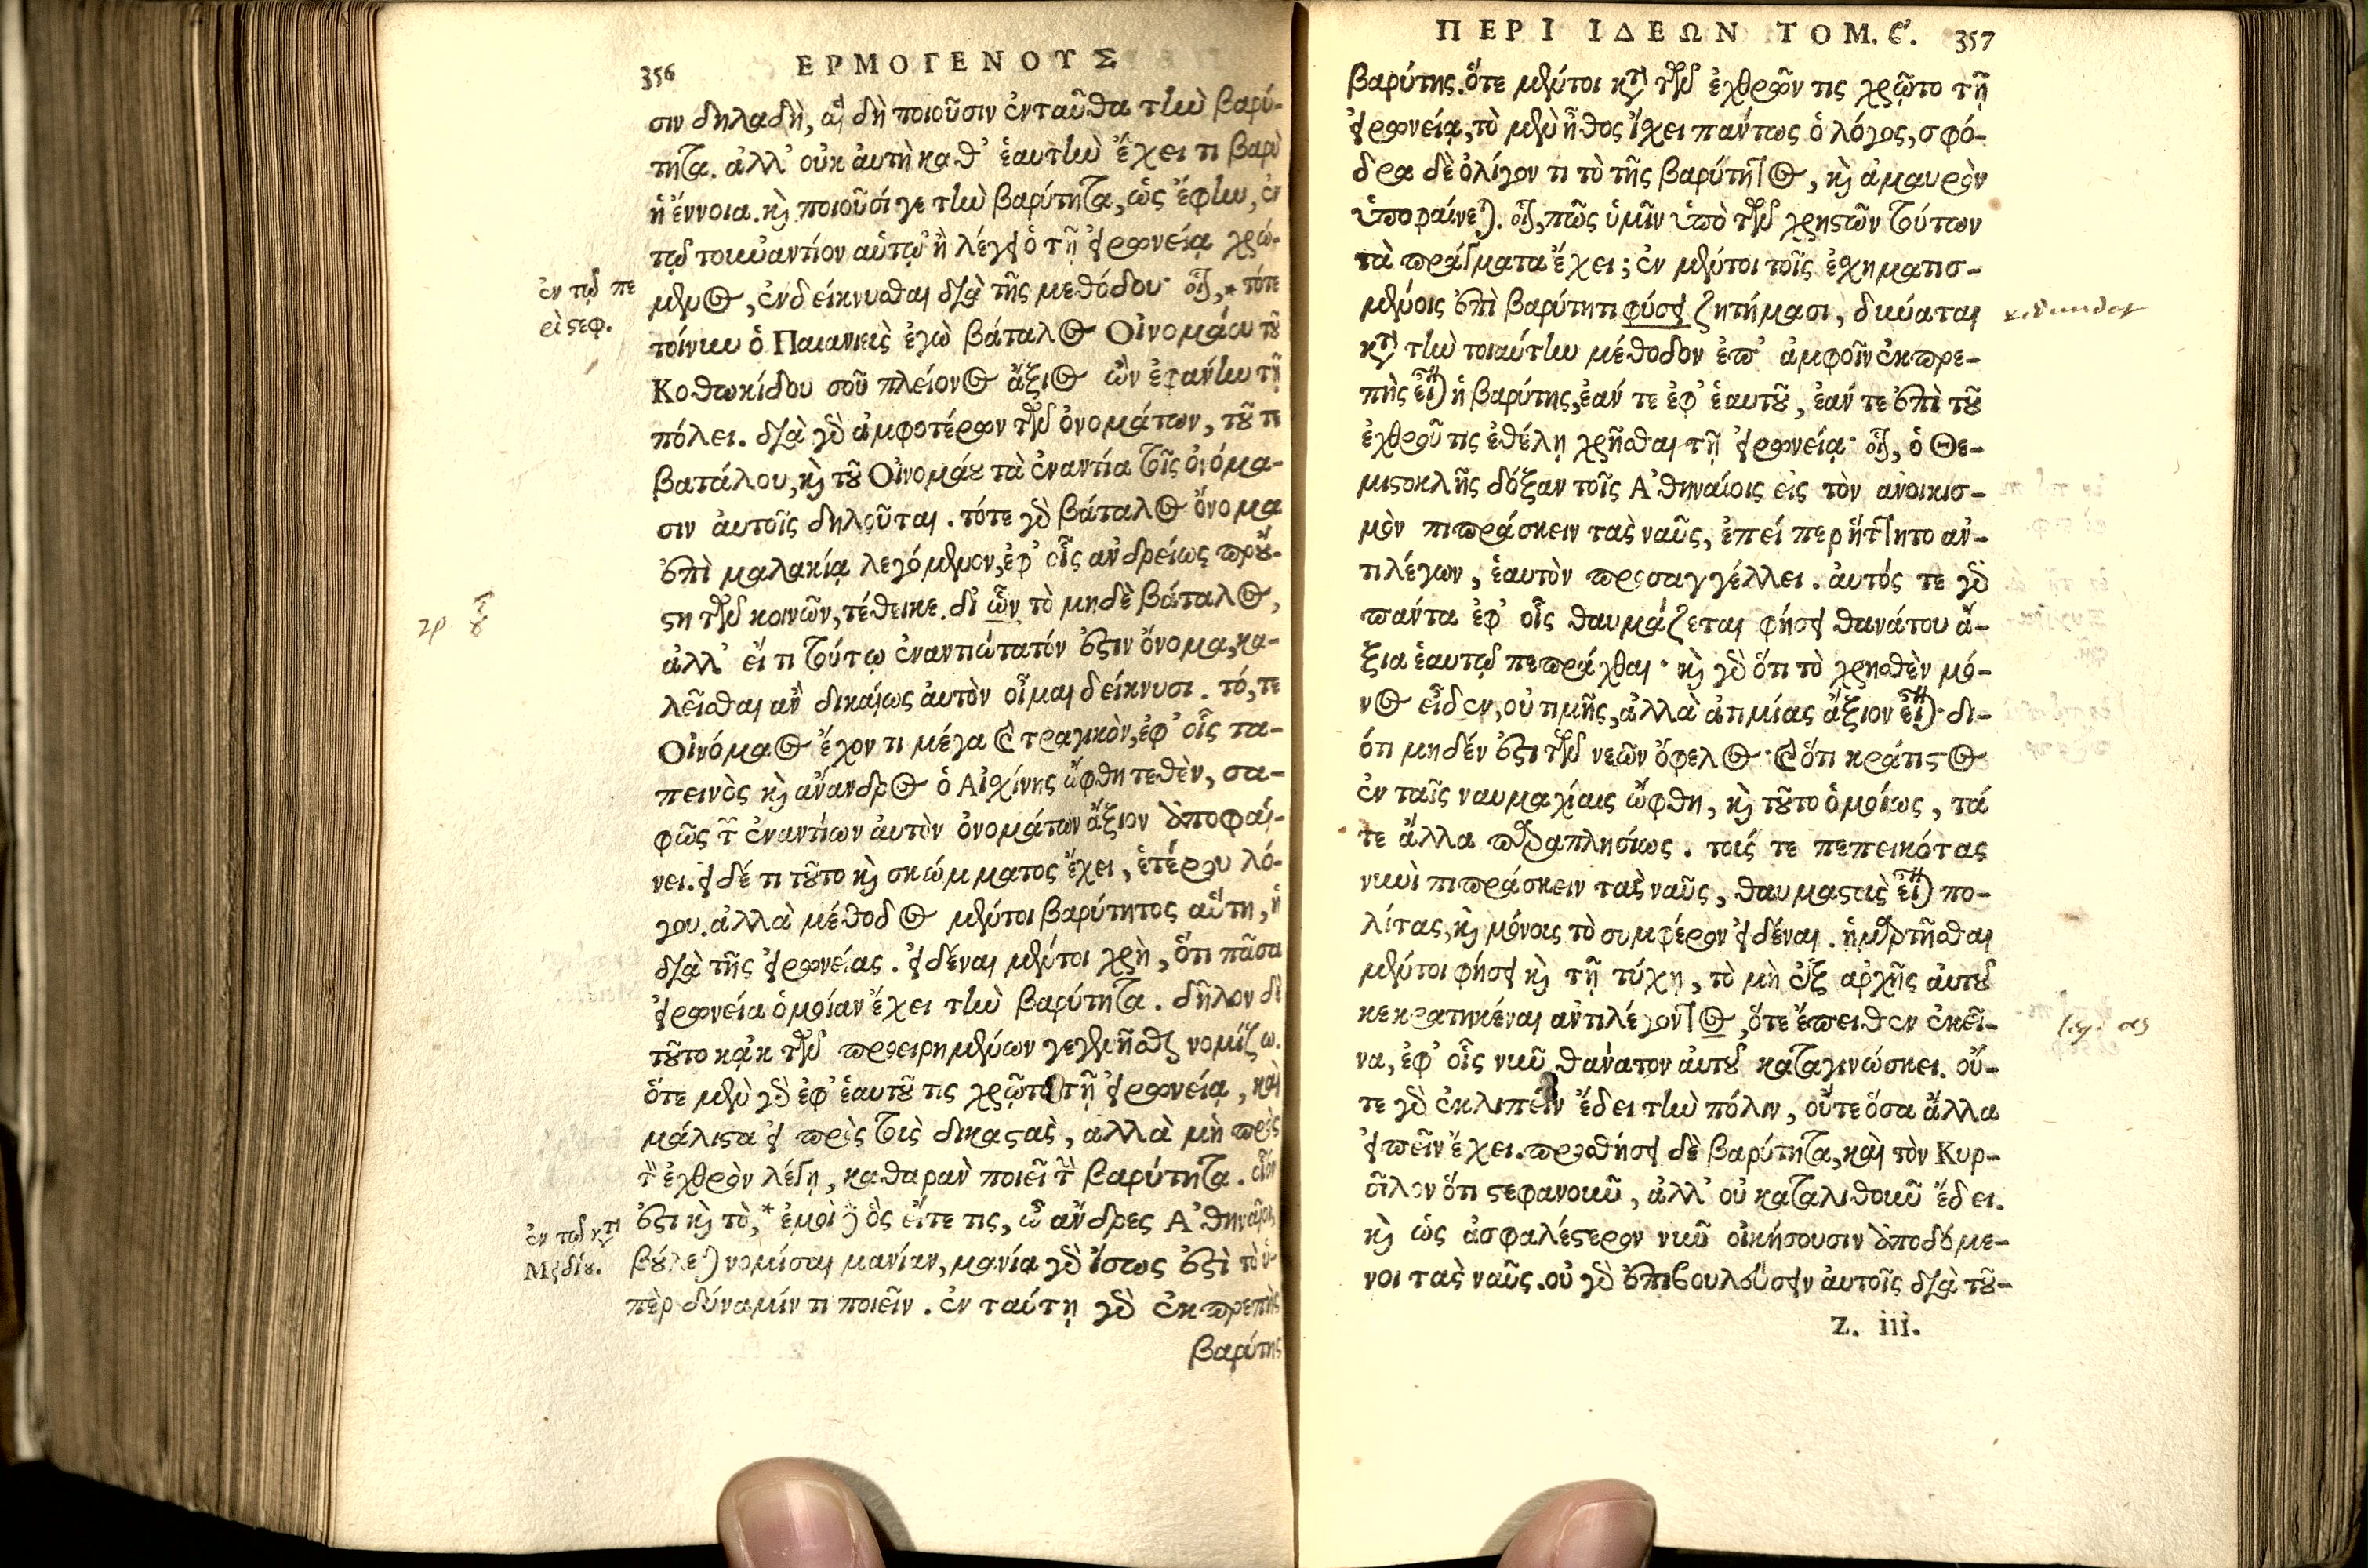 356 ΕΡΜΟΓΕΝΟΥΣ
σιν δηλαδὴ, αἳ δὴ ποιοῦσιν ἐνταῦθα τὴν βαρύ-
τητα. ἀλλ' οὐκ ἀυτὴ καθ' ἑαυτὴν ἔχει τι βαρὺ
ἡ ἔννοια. καὶ ποιοῦσί γε τὴν βαρύτητα, ὡς ἔφην, ἐν
τῷ τοὐναντίον αὐτῷ ἢ λέγει ὁ τῇ εἰρωνείᾳ χρώ-
μενος, ἐνδείκνυσθαι διὰ τῆς μεθόδου· οἷον, * τότε
ἐν τῷ πε
ρὶ στεφ.
τοίνυν ὁ Παιανιεὺς ἐγὼ βάταλος Οἰνομάου τοῦ
Κοθωκίδου σοῦ πλείονος ἄξιος ὢν ἐφάνην τῇ
πόλει. διὰ γὰρ ἀμφοτέρων τῶν ὀνομάτων, τοῦ τε
βατάλου, καὶ τοῦ Οἰνομάου τὰ ἐναντία τοῖς ὀνόμα-
σιν ἀυτοῖς δηλοῦται. τότε γὰρ βάταλος ὄνομα
ἐπὶ μαλακίᾳ λεγόμενον, ἐφ' οἷς ἀνδρείως προὔ-
στη τῶν κοινῶν, τέθεικε. δι' ὧν τὸ μηδὲ βάταλος,
ἀλλ' εἴ τι τούτῳ ἐναντιώτατόν ἐστιν ὄνομα, κα-
λεῖσθαι ἂν δικαίως ἀυτὸν οἶμαι δείκνυσι. τό, τε
Οἰνόμαος ἔχον τι μέγα καὶ τραγικὸν, ἐφ' οἷς τα-
πεινὸς καὶ ἄνανδρος ὁ Αἰσχίνης ὤφθη τεθὲν, σα-
φῶς τῶν ἐναντίων ἀυτὸν ὀνομάτων ἄξιον ἀποφαί-
νει. εἰ δέ τι τοῦτο καὶ σκώμματος ἔχει, ἑτέρου λό-
γου. ἀλλὰ μέθοδος μέντοι βαρύτητος αὕτη, ἡ
διὰ τῆς εἰρωνείας. εἰδέναι μέντοι χρὴ, ὅτι πᾶσα
εἰρωνεία ὁμοίαν ἔχει τὴν βαρύτητα. δῆλον δὲ
τοῦτο κᾀκ τῶν προειρημένων γεγενῆσθαι νομίζω.
ὅτε μὲν γὰρ ἐφ' ἑαυτοῦ τις χρῷτο τῇ εἰρωνείᾳ, καὶ
μάλιστα εἰ πρὸς τοὺς δικαστὰς, ἀλλὰ μὴ πρὸς
τὸν ἐχθρὸν λέγῃ, καθαρὰν ποιεῖ τὴν βαρύτητα. οἷόν
ἐστι καὶ τὸ, * ἐμοὶ δὲ ὃς εἴτε τις, ὦ ἄνδρες Ἀθηναῖοι,
ἐν τῷ κατὰ
Μειδίου.
βούλεται νομίσαι μανίαν, μανία γὰρ ἴσως ἐστὶ τὸ ὑ-
πὲρ δύναμίν τι ποιεῖν. ἐν ταύτῃ γὰρ ἐκπρεπὴς
βαρύτης
ΠΕΡΙ ΙΔΕΩΝ ΤΟΜ. ϛ. 357
βαρύτης. ὅτε μέντοι κατὰ τῶν ἐχθρῶν τις χρῷτο τῇ
εἰρωνείᾳ, τὸ μὲν ἦθος ἔχει πάντως ὁ λόγος, σφό-
δρα δὲ ὀλίγον τι τὸ τῆς βαρύτητος, καὶ ἀμαυρὸν
ὑποφαίνεται. οἷον, πῶς ὑμῖν ὑπὸ τῶν χρηστῶν τούτων
τὰ πράγματα ἔχει; ἐν μέντοι τοῖς ἐσχηματισ-
μένοις ἐπὶ βαρύτητι φύσει ζητήμασι, δύναται
κατὰ τὴν τοιαύτην μέθοδον ἐπ' ἀμφοῖν ἐκπρε-
πὴς εἶναι ἡ βαρύτης, ἐάν τε ἐφ' ἑαυτοῦ, ἐάν τε ἐπὶ τοῦ
ἐχθροῦ τις ἐθέλῃ χρῆσθαι τῇ εἰρωνείᾳ· οἷον, ὁ Θε-
μιστοκλῆς δόξαν τοῖς Ἀθηναίοις εἰς τὸν ἀνοικισ-
μὸν πιπράσκειν τὰς ναῦς, ἐπεί περ ἥττητο ἀν-
τιλέγων, ἑαυτὸν προσαγγέλλει. ἀυτός τε γὰρ
πάντα ἐφ' οἷς θαυμάζεται φήσει θανάτου ἄ-
ξια ἑαυτῷ πεπράχθαι· καὶ γὰρ ὅτι τὸ χρησθὲν μό-
νος εἶδεν, οὐ τιμῆς, ἀλλὰ ἀτιμίας ἄξιον εἶναι· δι-
ότι μηδέν ἐστι τῶν νεῶν ὄφελος· καὶ ὅτι κράτιστος
ἐν ταῖς ναυμαχίαις ὤφθη, καὶ τοῦτο ὁμοίως, τά
τε ἄλλα παραπλησίως. τούς τε πεπεικότας
νυνὶ πιπράσκειν τὰς ναῦς, θαυμαστοὺς εἶναι πο-
λίτας, καὶ μόνους τὸ συμφέρον εἰδέναι. ἡμαρτῆσθαι
μέντοι φήσει καὶ τῇ τύχῃ, τὸ μὴ ἐξ ἀρχῆς ἀυτοῦ
κεκρατηκέναι ἀντιλέγοντος, ὅτε ἔπειθεν ἐκεῖ-
να, ἐφ' οἷς νῦν θάνατον ἀυτοῦ καταγινώσκει. οὔ-
τε γὰρ ἐκλιπεῖν ἔδει τὴν πόλιν, οὔτε ὅσα ἄλλα
εἰπεῖν ἔχει. προσθήσει δὲ βαρύτητα, καὶ τὸν Κυρ-
σῖλον ὅτι στεφανοῦν, ἀλλ' οὐ καταλιθοῦν ἔδει.
καὶ ὡς ἀσφαλέστερον νῦν οἰκήσουσιν ἀποδόμε-
νοι τὰς ναῦς. οὐ γὰρ ἐπιβουλεύσειν ἀυτοῖς διὰ τοῦ-
Z. iii.